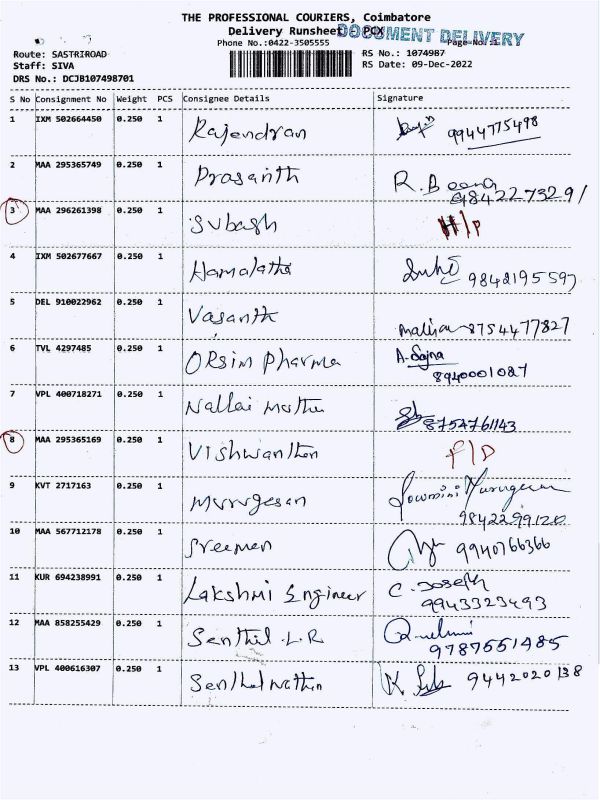 THE PROFESSIONAL COURIERS, Coimbatore
Delivery Runsheet - PCX
DOCUMENT DELIVERY
Phone No.:0422-3505555 Page No.:1
Route: SASTRIROAD RS No.: 1074987
Staff: SIVA RS Date: 09-Dec-2022
DRS No.: DCJB107498701
S No Consignment No Weight PCS Consignee Details Signature
1 IXM 502664450 0.250 1 Rajendran 9944775498
2 MAA 295365749 0.250 1 Prasanth R. Beena
9842273291
3 MAA 296261398 0.250 1 Subash H/P
4 IXM 502677667 0.250 1 Hamalatha 9842195597
5 DEL 910022962 0.250 1 Vasanth
8754477827
6 TVL 4297485 0.250 1 Orsim Pharma A. Sajna
8940001087
7 VPL 400718271 0.250 1 Nallai
8752761143
8 MAA 295365169 0.250 1 Vishwanthan F/D
9 KVT 2717163 0.250 1 Murugesan Sowmini Murugesan
9842299120
10 MAA 567712178 0.250 1 Sreeman 9940766366
11 KUR 694238991 0.250 1 Lakshmi Engineer C. Joseph
9943323493
12 MAA 858255429 0.250 1 Senthil .L.R
9787551485
13 VPL 400616307 0.250 1 Senthilnathan K 9442020138